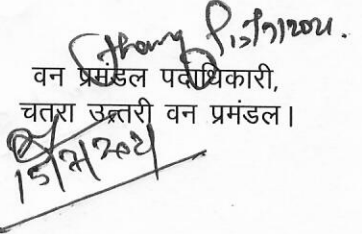 वन प्रमंडल पदाधिकारी,
चतरा उत्तरी वन प्रमंडल।
15/7/2021